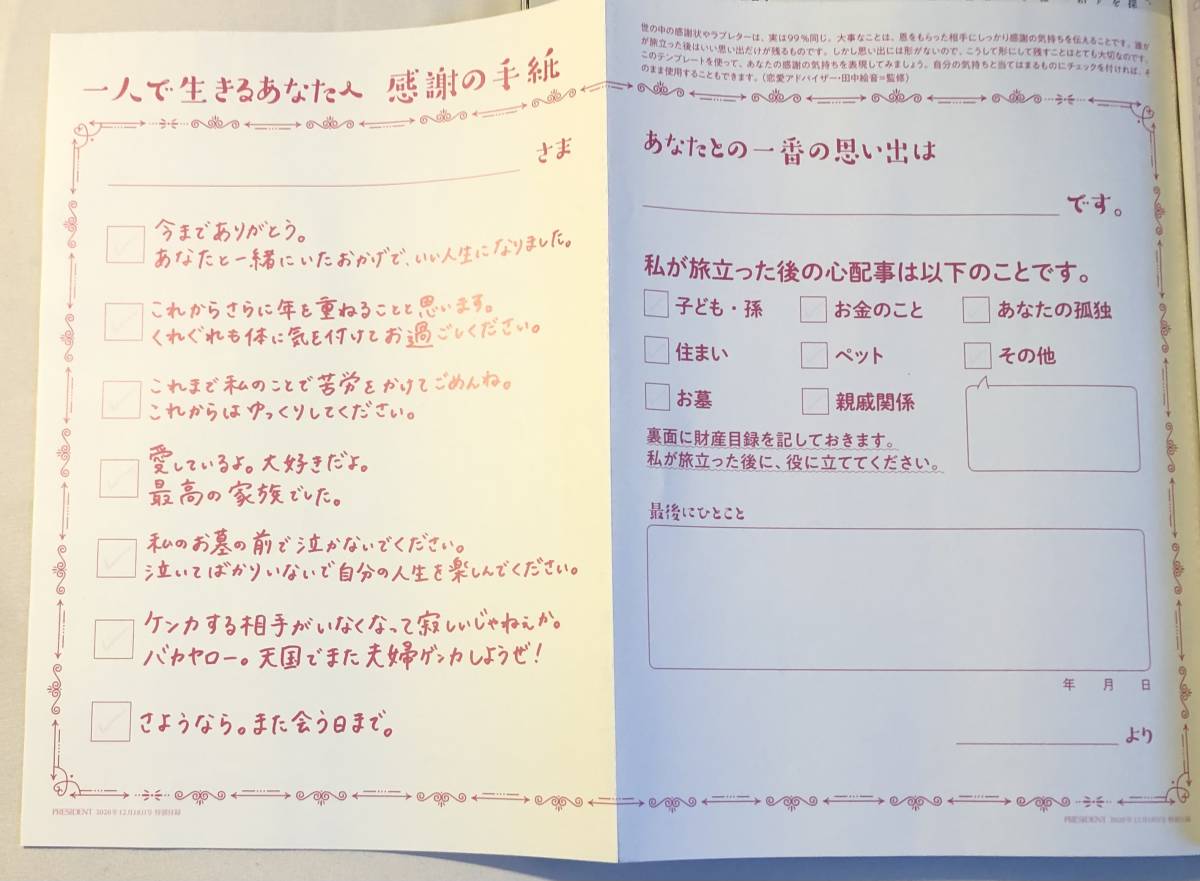 一人で生きるあなたへ 感謝の手紙
さま
今までありがとう。
あなたと一緒にいたおかげで、いい人生になりました。
これからさらに年を重ねることと思います。
くれぐれも体に気を付けてお過ごしください。
これまで私のことで苦労をかけてごめんね。
これからはゆっくりしてください。
愛しているよ。大好きだよ。
最高の家族でした。
私のお墓の前で泣かないでください。
泣いてばかりいないで自分の人生を楽しんでください。
ケンカする相手がいなくなって寂しいじゃねぇか。
バカヤロー。天国でまた夫婦ゲンカしようぜ！
さようなら。また会う日まで。
PRESIDENT 2020年12月18日号 特別付録
世の中の感謝状やラブレターは、実は99％同じ。大事なことは、恩をもらった相手にしっかり感謝の気持ちを伝えることです。誰か
が旅立った後はいい思い出だけが残るものです。しかし思い出には形がないので、こうして形にして残すことはとても大切なのです。
このテンプレートを使って、あなたの感謝の気持ちを表現してみましょう。自分の気持ちと当てはまるものにチェックを付ければ、そ
のまま使用することもできます。（恋愛アドバイザー・田中絵音＝監修）
あなたとの一番の思い出は
です。
私が旅立った後の心配事は以下のことです。
子ども・孫 お金のこと あなたの孤独
住まい ペット その他
お墓 親戚関係
裏面に財産目録を記しておきます。
私が旅立った後に、役に立ててください。
最後にひとこと
年 月 日
より